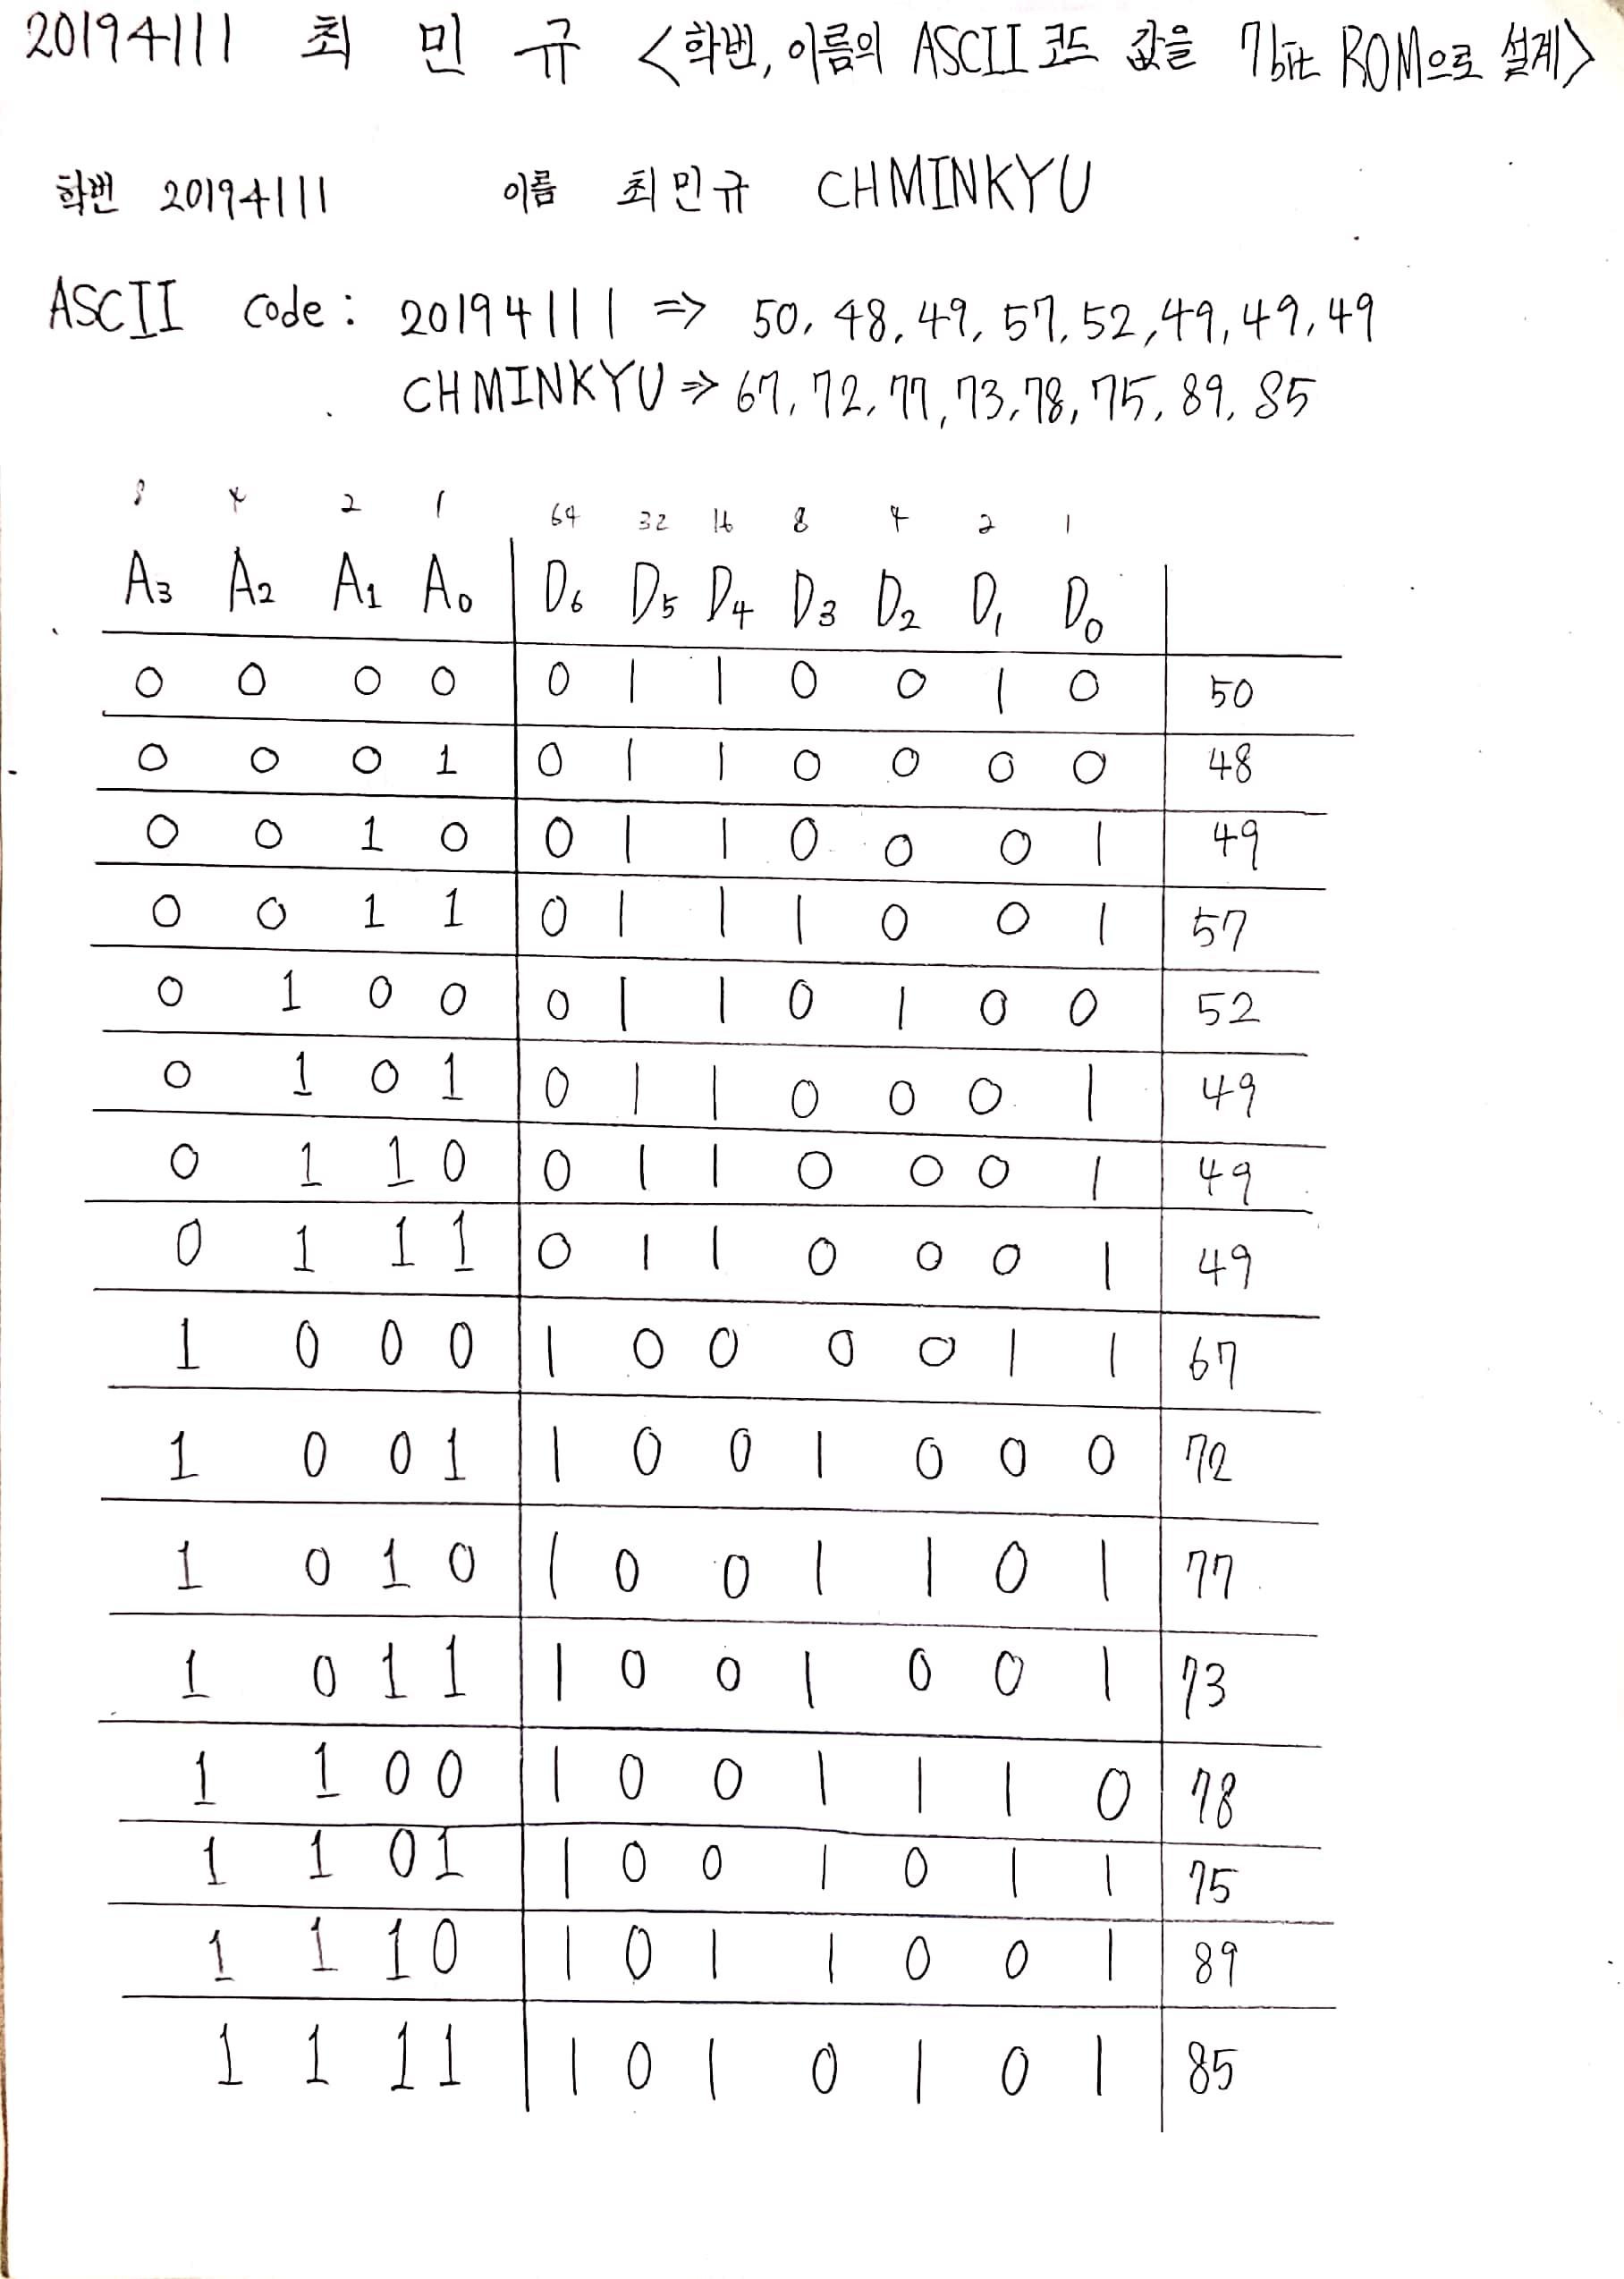 20194111 최 민 규 <학번, 이름의 ASCII 코드 값을 7bit ROM으로 설계>
학번 20194111 이름 최민규 CHMINKYU
ASCII code : 20194111 => 50, 48, 49, 57, 52, 49, 49, 49
CHMINKYU => 67, 72, 77, 73, 78, 75, 89, 85
8 4 2 1 64 32 16 8 4 2 1
A3 A2 A1 A0 D6 D5 D4 D3 D2 D1 D0
0 0 0 0 0 1 1 0 0 1 0 50
0 0 0 1 0 1 1 0 0 0 0 48
0 0 1 0 0 1 1 0 0 0 1 49
0 0 1 1 0 1 1 1 0 0 1 57
0 1 0 0 0 1 1 0 1 0 0 52
0 1 0 1 0 1 1 0 0 0 1 49
0 1 1 0 0 1 1 0 0 0 1 49
0 1 1 1 0 1 1 0 0 0 1 49
1 0 0 0 1 0 0 0 0 1 1 67
1 0 0 1 1 0 0 1 0 0 0 72
1 0 1 0 1 0 0 1 1 0 1 77
1 0 1 1 1 0 0 1 0 0 1 73
1 1 0 0 1 0 0 1 1 1 0 78
1 1 0 1 1 0 0 1 0 1 1 75
1 1 1 0 1 0 1 1 0 0 1 89
1 1 1 1 1 0 1 0 1 0 1 85